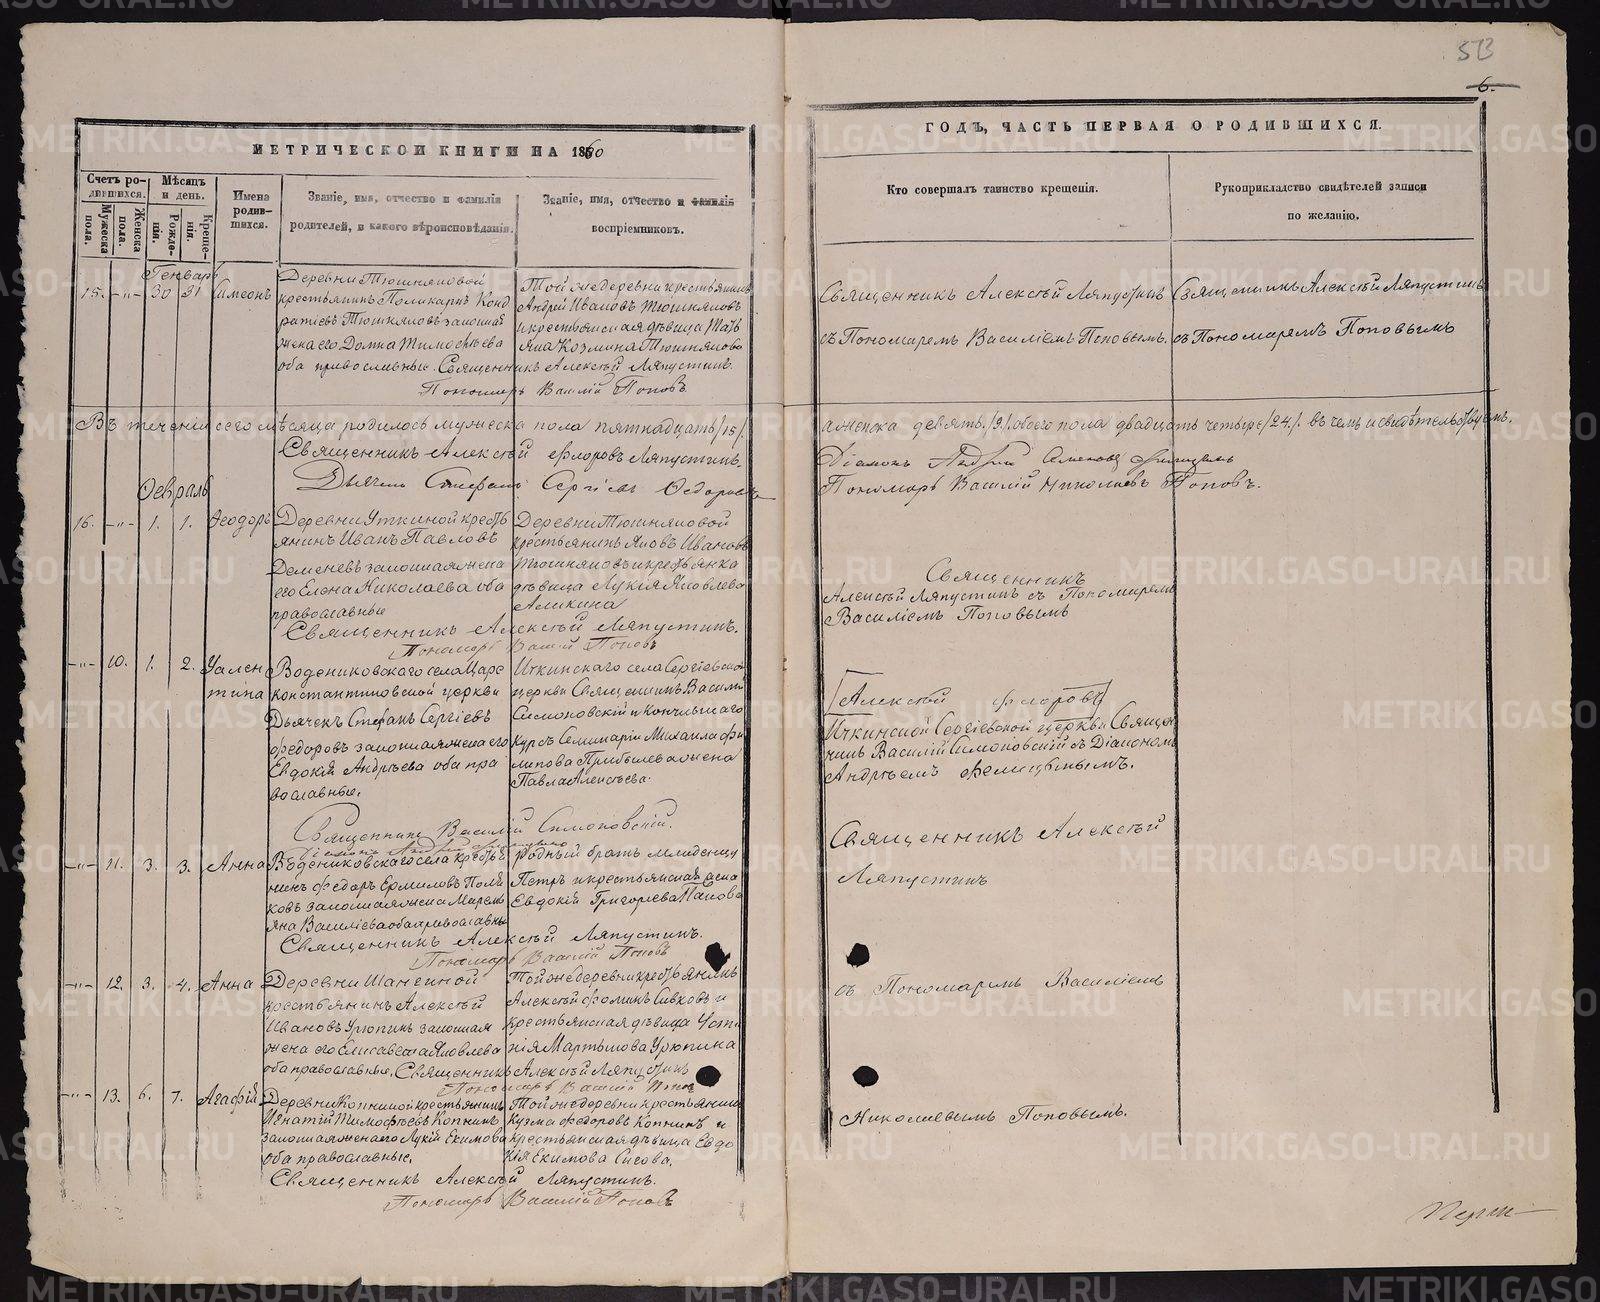 513
6.
МЕТРИЧЕСКОЙ КНИГИ НА 1860
ГОДЪ, ЧАСТЬ ПЕРВАЯ О РОДИВШИХСЯ.
Счетъ ро-
дившихся.
Мѣсяцъ
и день.
Мужеска
пола.
Женска
пола.
Рожде-
нія.
Креще-
нія.
Имена
родив-
шихся.
Званіе, имя, отчество и фамилія
родителей, и какого вѣроисповѣданія.
Званіе, имя, отчество и фамилія
воспріемниковъ.
Кто совершалъ таинство крещенія.
Рукоприкладство свидѣтелей записи
по желанію.
Генварь
15. -"- 30 31 Симеонъ
Деревни Тюшняковой
крестьянинъ Поликарпъ Конд
ратіевъ Тюшняковъ законная
жена его Домна Тимофѣева
оба православные.
Той же деревни крестьянинъ
Андрей Ивановъ Тюшняковъ
и крестьянская дѣвица Тать
яна Козмина Тюшнякова
Священникъ Алексѣй Ляпустинъ.
Пономарь Василій Поповъ
Священникъ Алексѣй Ляпустинъ
съ Пономаремъ Василіемъ Поповымъ.
Священникъ Алексѣй Ляпустинъ
съ Пономаремъ Поповымъ
Въ теченіи сего мѣсяца родилось мужеска пола пятнадцать /15/.
а женска девять /9/. обоего пола двадцать четыре /24./. въ чемъ и свидѣтельствуемъ.
Священникъ Алексѣй Флоровъ Ляпустинъ.
Дьячекъ Стефанъ Сергіевъ Федоровъ
Діаконъ Андрей Семеновъ
Пономарь Василій Николаевъ Поповъ.
Февраль
16. -"- 1. 1. Феодоръ
Деревни Уткиной кресть
янинъ Иванъ Павловъ
Деменевъ законная жена
его Елена Николаева оба
православные
Деревни Тюшняковой
крестьянинъ Яковъ Ивановъ
Тюшняковъ и крестьянка
дѣвица Лукія Яковлева
Аликина
Священникъ Алексѣй Ляпустинъ.
Пономарь Василій Поповъ
Священникъ
Алексѣй Ляпустинъ съ Пономаремъ
Василіемъ Поповымъ
-"- 10. 1. 2. Уален
тина
Водениковскаго села Царе
константиновской церкви
Дьячекъ Стефанъ Сергіевъ
Федоровъ законная жена его
Евдокія Андрѣева оба пра
вославные.
Иткинскаго села Сергіевской
церкви Священникъ Василій
Симоновскій и Кончившаго
Курсъ Семинаріи Михаила Фи
липова Прибылева жена
Павла Алексѣева.
Священникъ Василій Симоновскій.
Діаконъ Андрей
/Алексѣй Флоровъ/
Иткинской Сергіевской церкви Священ
никъ Василій Симоновскій съ Діакономъ
Андрѣемъ Фелицынымъ.
-"- 11. 3. 3. Анна
Водениковскаго села кресть
нинъ Федоръ Ермиловъ Поля
ковъ законная жена Марем
яна Василіева оба православны
Родный братъ младенцу
Петръ и крестьянская жена
Евдокія Григорьева Панова
Священникъ Алексѣй Ляпустинъ.
Пономарь Василій Поповъ
Священникъ Алексѣй
Ляпустинъ
-"- 12. 3. 4. Анна
Деревни Шангиной
крестьянинъ Алексѣй
Ивановъ Урюпинъ законная
жена его Елисавета Яковлева
оба православные.
Той же деревни крестьянинъ
Алексѣй Фоминъ Сивковъ и
крестьянская дѣвица Усти
нія Мартынова Урюпина
Священникъ Алексѣй Ляпустинъ
Пономарь Василій Поповъ
съ Пономаремъ Василіемъ
-"- 13. 6. 7. Агафія
Деревни Копниной крестьянинъ
Игнатій Тимофѣевъ Копнинъ
законная жена его Лукія Екимова
оба православные.
Той же деревни крестьянинъ
Кузма Федоровъ Копнинъ и
крестьянская дѣвица Евдо
кія Екимова Сигова.
Священникъ Алексѣй Ляпустинъ.
Пономарь Василій Поповъ
Николаевымъ Поповымъ.
METRIKI.GASO-URAL.RU